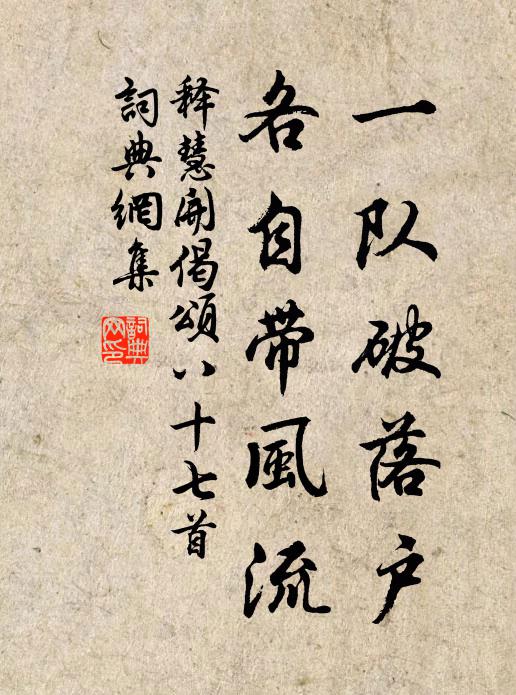 一队破落户
各自带風流
释慧開偈頌八十七首
詞典網集
詞典网印